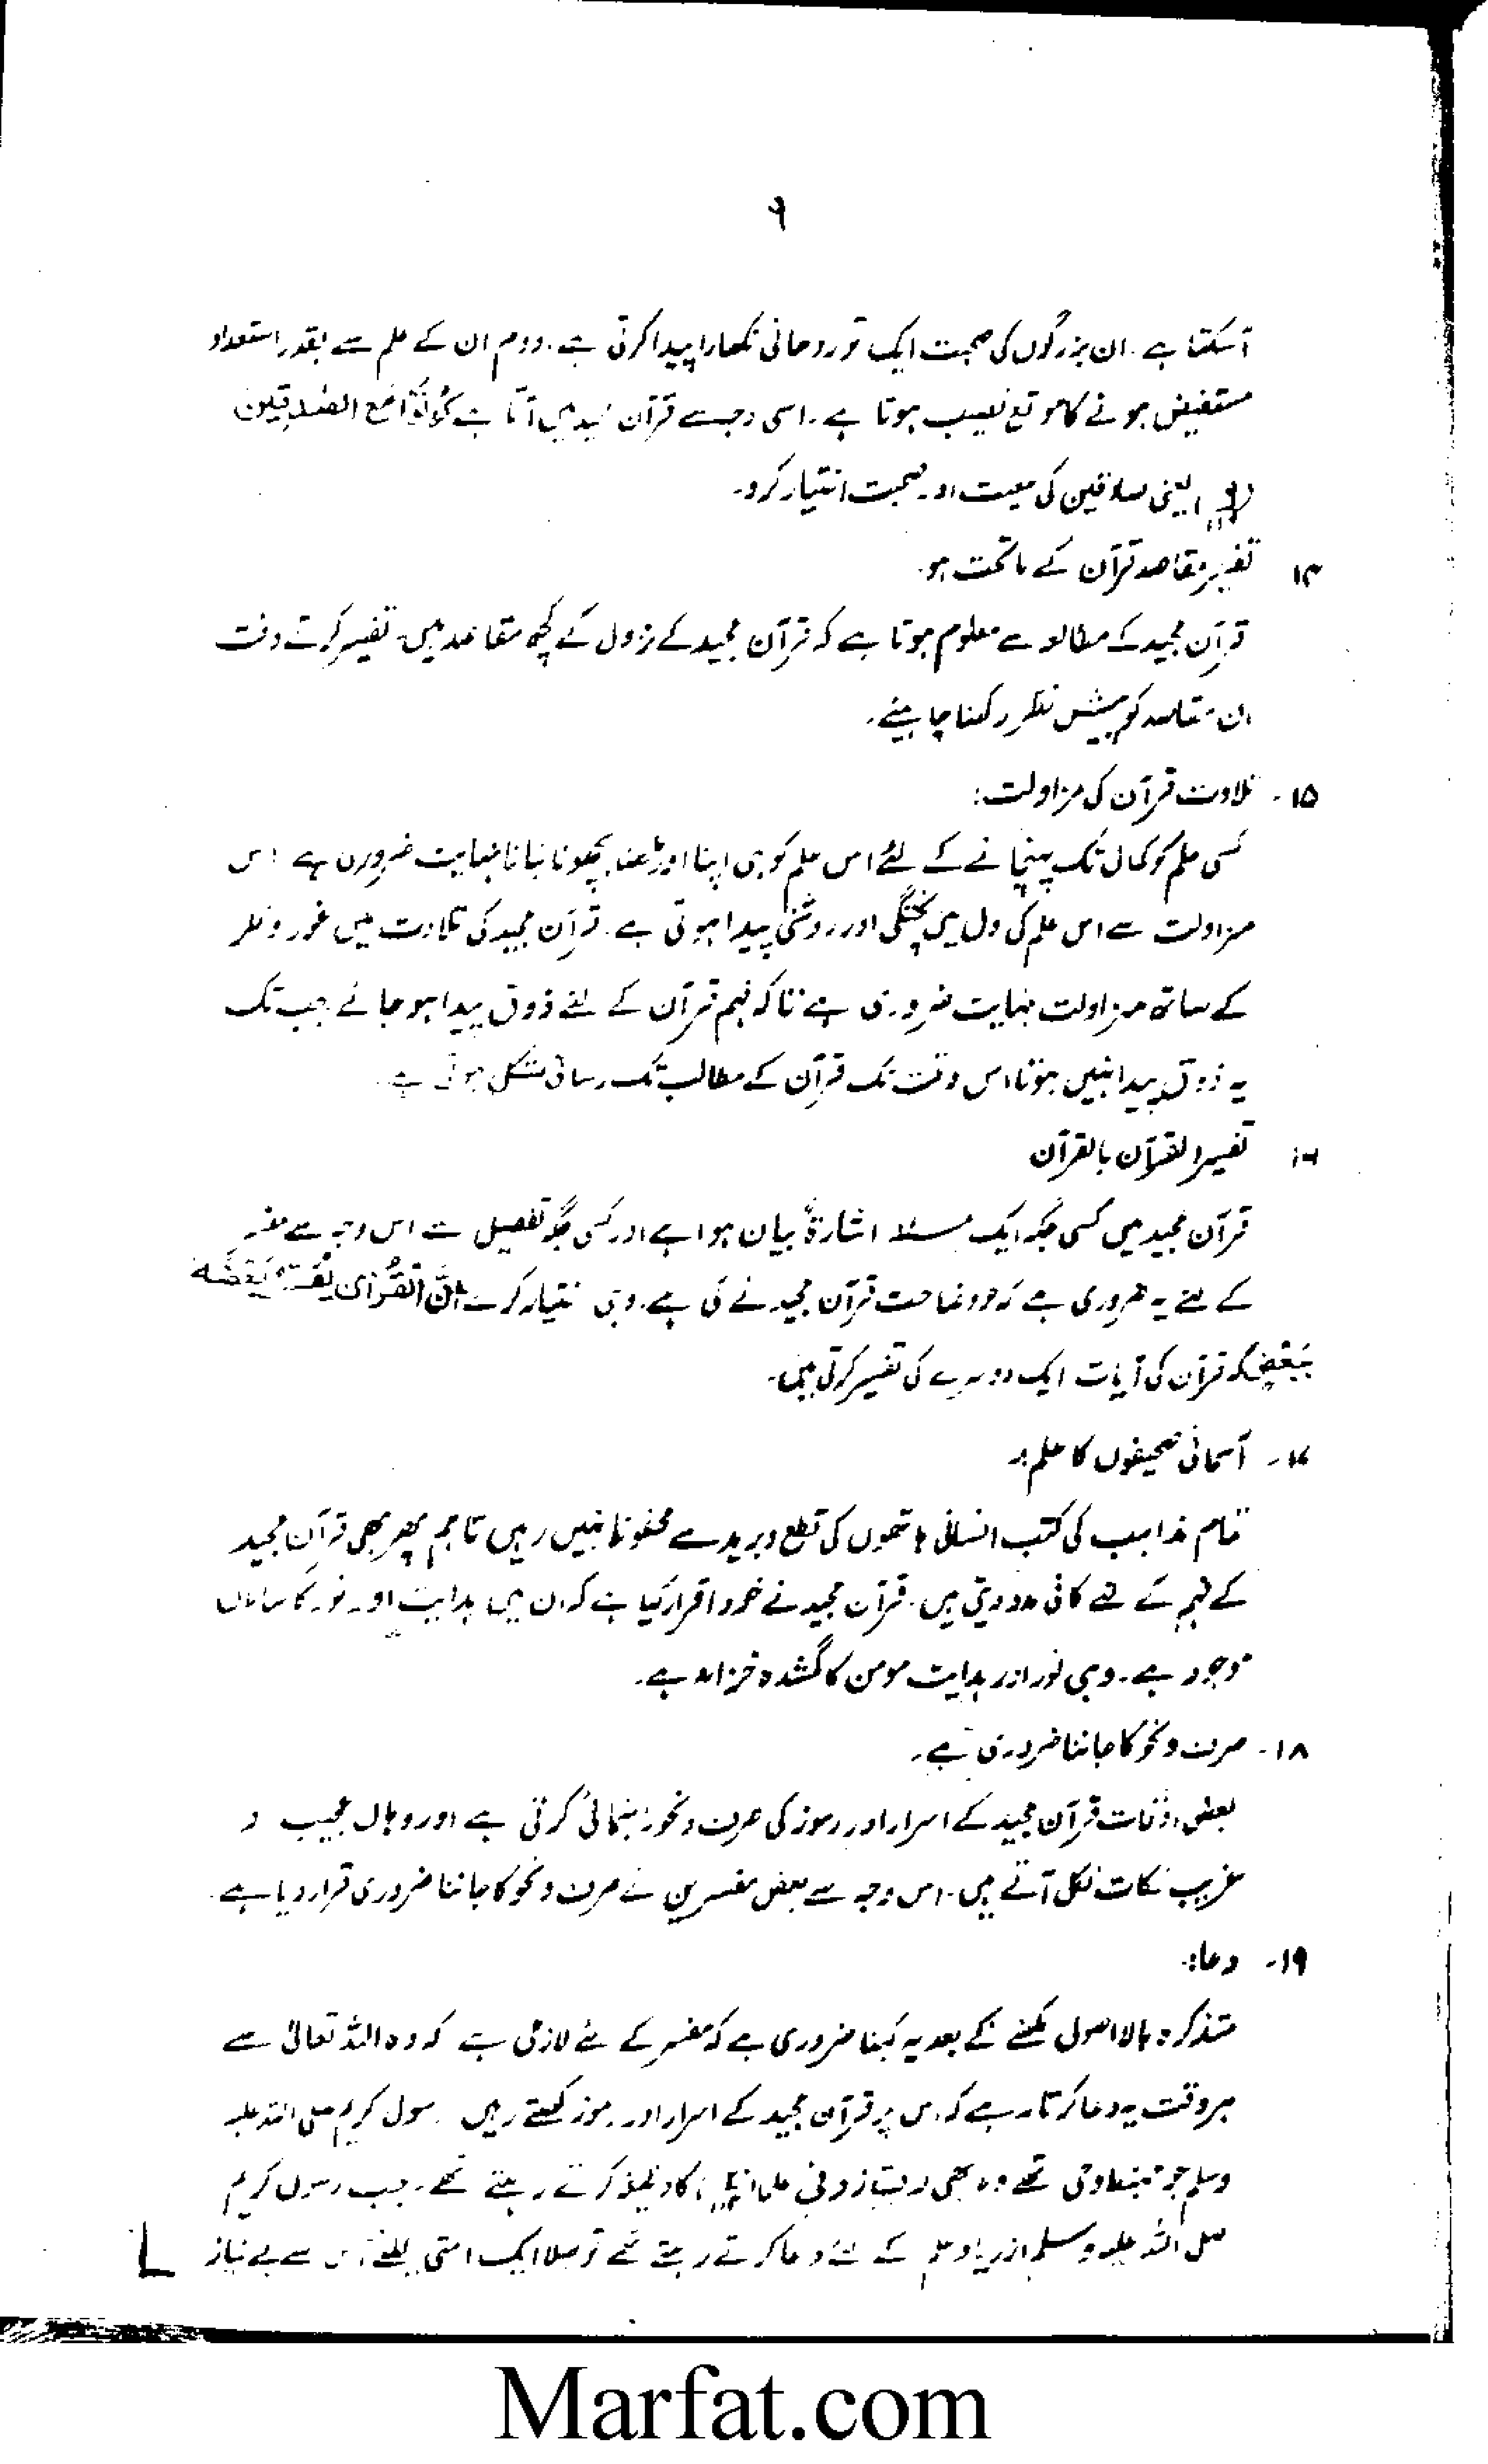 ۹
آسکتا ہے۔ ان بزرگوں کی صحبت ایک تو روحانی نکھارا پیدا کرتی ہے۔ دوم ان کے علم سے بقدر استعداد
مستفیض ہونے کا موقع نصیب ہوتا ہے۔ اسی وجہ سے قرآن مجید میں آتا ہے کُوْنُوْا مَعَ الصّٰدِقِیْنَ
یعنی صادقین کی معیت اور صحبت اختیار کرو۔
۱۴ تفسیر مقاصد قرآن کے ماتحت ہو۔
قرآن مجید کے مطالعہ سے معلوم ہوتا ہے کہ قرآن مجید کے نزول کے کچھ مقاصد ہیں۔ تفسیر کرتے وقت
ان مقاصد کو پیش نظر رکھنا چاہیئے۔
۱۵۔ تلاوت قرآن کی مزاولت:
کسی علم کو کمال تک پہنچانے کے لئے اس علم کو ہی اپنا اوڑھنا بچھونا بنانا نہایت ضروری ہے اس
مزاولت سے اس علم کی دل میں پختگی اور روشنی پیدا ہوتی ہے۔ قرآن مجید کی تلاوت میں غور و فکر
کے ساتھ مزاولت نہایت ضروری ہے تاکہ فہم قرآن کے لئے ذوق پیدا ہو جائے جب تک
یہ ذوق پیدا نہیں ہوتا اس وقت تک قرآن کے مطالب تک رسائی مشکل ہوتی ہے۔
۱۶ تفسیر القرآن بالقرآن
قرآن مجید میں کسی جگہ ایک مسئلہ اشارۃً بیان ہوا ہے اور کسی جگہ تفصیل سے اس وجہ سے مفسر
کے لئے یہ ضروری ہے کہ جو وضاحت قرآن مجید نے کی ہے۔ وہی اختیار کرے اِنَّ الْقُرْاٰنَ یُفَسِّرُ بَعْضُہٗ
بِبَعْضٍ کہ قرآن کی آیات ایک دوسرے کی تفسیر کرتی ہیں۔
۱۷۔ آسمانی صحیفوں کا علم:
تمام مذاہب کی کتب انسانی ہاتھوں کی قطع و برید سے محفوظ نہیں رہیں تاہم پھر بھی قرآن مجید
کے فہم کے لئے کافی مدد دیتی ہیں۔ قرآن مجید نے خود اقرار کیا ہے کہ ان میں ہدایت اور نور کا سامان
موجود ہے۔ وہی نور اور ہدایت مومن کا گمشدہ خزانہ ہے۔
۱۸۔ صرف و نحو کا جاننا ضروری ہے۔
بعض اوقات قرآن مجید کے اسرار اور رموز کی صرف و نحو رہنمائی کرتی ہے اور وہاں عجیب و
غریب نکات نکل آتے ہیں۔ اس وجہ سے بعض مفسرین نے صرف و نحو کا جاننا ضروری قرار دیا ہے۔
۱۹۔ دعا:
متذکرہ بالا اصول لکھنے کے بعد یہ کہنا ضروری ہے کہ مفسر کے لئے لازمی ہے کہ وہ اللہ تعالیٰ سے
ہر وقت یہ دعا کرتا رہے کہ اس پر قرآن مجید کے اسرار اور رموز کھلتے رہیں۔ رسول کریم صلی اللہ علیہ
وسلم جو مہبط وحی تھے وہ بھی رب زدنی علما کا وظیفہ کرتے رہتے تھے۔ جب رسول کریم
صلی اللہ علیہ وسلم ازدیاد علم کے لئے دعا کرتے رہتے تھے تو بھلا ایک امتی کیلئے اس سے بے نیاز
Marfat.com